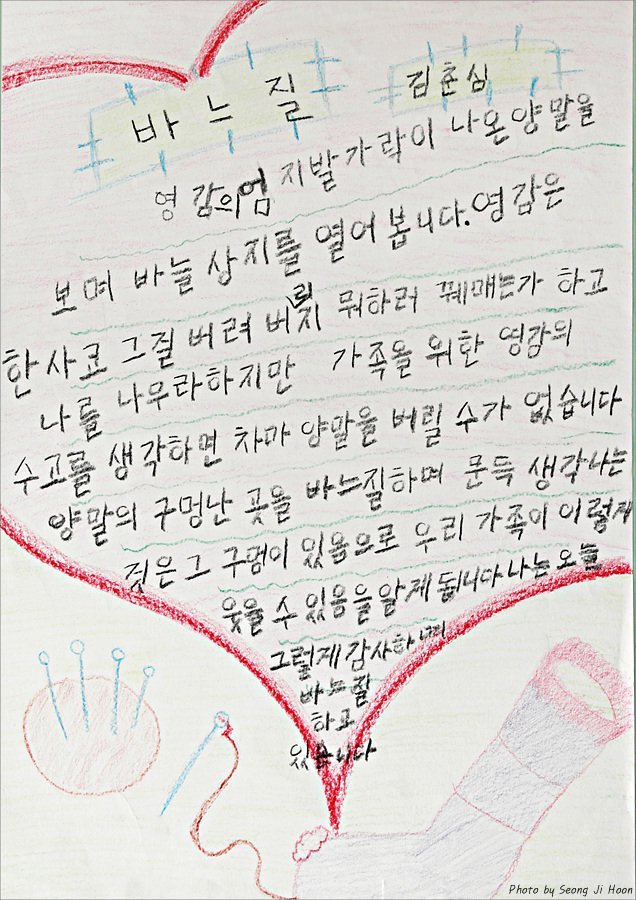 바느질
김춘심
영감의엄지발가락이 나온양말을
보며 바늘 상지를 열어 봅니다.영감은
한사코 그질 버려 버릭지 뭐하러 꿰매는가 하고
나를 나무라하지만 가족을 위한 영감의
수고를 생각하면 차마 양말을 버릴 수가 없습니다
양말의 구멍난 곳을 바느질하며 문득 생각나는
것은 그 구멍이 있음으로 우리 가족이 이렇게
웃을 수 있음을 알게 됩니다나는 오늘
그렇게 감사하며
바느질
하고
있습니다
Photo by Seong Ji Hoon